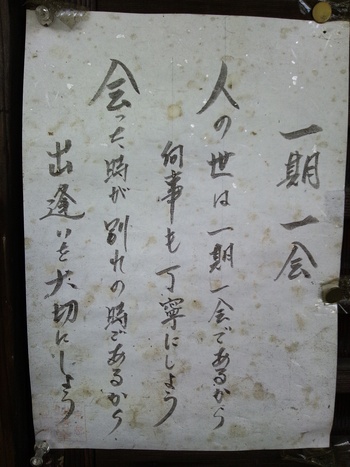 一期一会
人の世は一期一会であるから
何事も丁寧にしよう
会った時が別れの時であるから
出逢いを大切にしよう